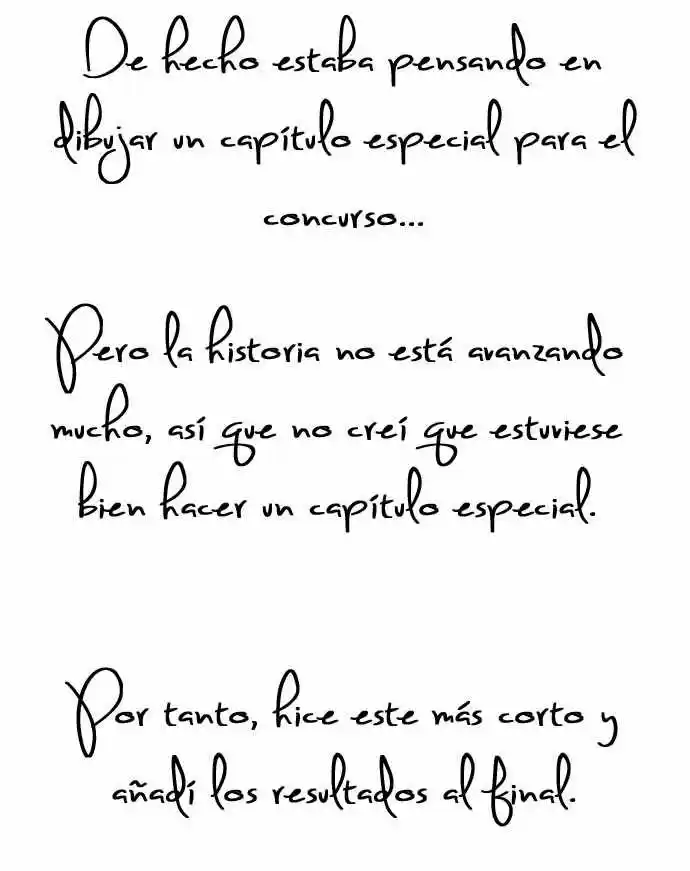 De hecho estaba pensando en
dibujar un capítulo especial para el
concurso...
Pero la historia no está avanzando
mucho, así que no creí que estuviese
bien hacer un capítulo especial.
Por tanto, hice este más corto y
añadí los resultados al final.